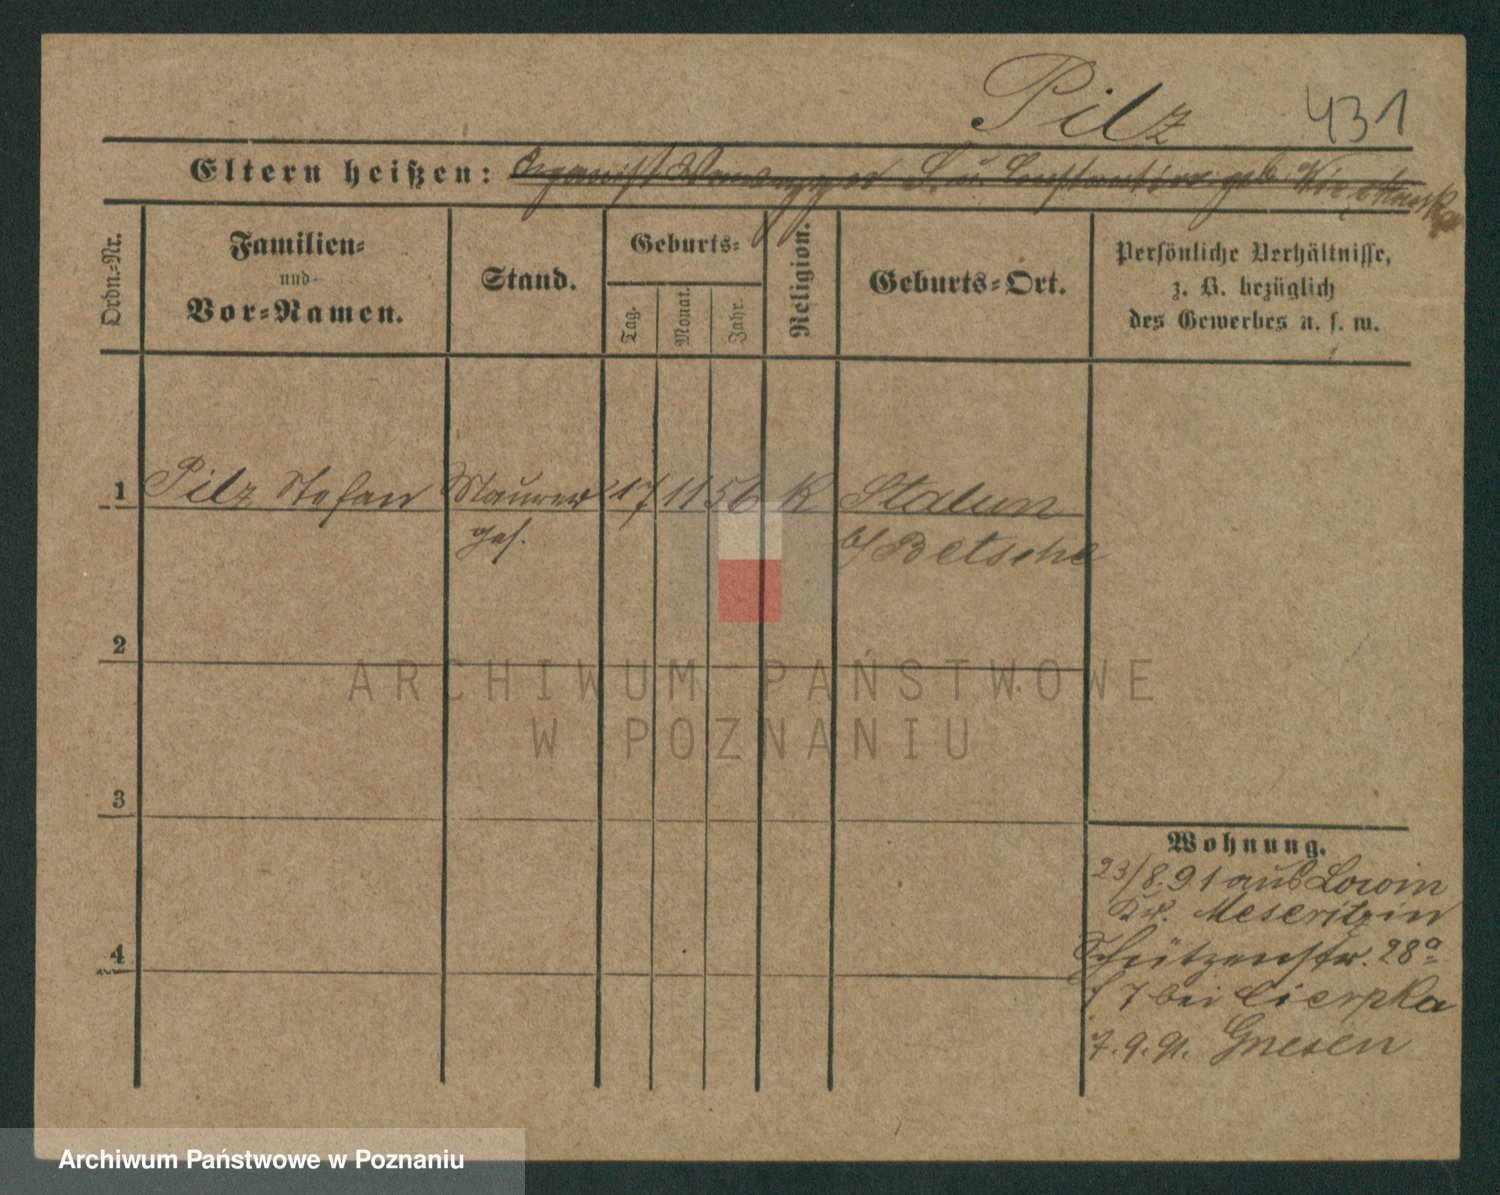 Pilz 431
Eltern heißen: Organist L. u. Constantine geb.
Ordn.-Nr.
Familien-
und
Vor-Namen.
Stand.
Geburts-
Tag.
Monat.
Jahr.
Religion.
Geburts-Ort.
Persönliche Verhältnisse,
z. B. bezüglich
des Gewerbes u. s. w.
1 Pilz Stefan Maurer 17 11 56 K Stalun
ges. b/ Betsche
2
3
4
Wohnung.
23/8.91 aus Lowin
Kr. Meseritz in
Schützenstr. 28a
bei Cierpka
7.9.91. Gnesen
ARCHIWUM PAŃSTWOWE
W POZNANIU
Archiwum Państwowe w Poznaniu